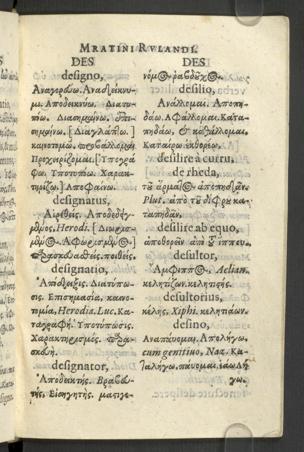 MRATINI RVLANDI.
DES
designo,
Αναγορεύω. Αναδείκνυ-
μι. Αποδεικνύω. Διατυ-
πῶ. Διασημαίνω.
σημαίνω. [Διαγλάπω.]
καινοτομῶ. περιβάλλομαι
Προχειρίζομαι. [Υπογρά-
φω. Υποτυπῶ. Χαρακ-
τηρίζω.] Αποφαίνω.
designatus,
Αἱρεθείς. Αποδεδειγ-
μένος. Herodi. [Διωρισ-
μένος. Αφωρισμένος.]
designatio,
Απόδειξις. Διατύπω-
σις. Επισημασία, καινο-
τομία, Herodia. Luc. Κα-
ταγραφή. Υποτύπωσις.
Χαρακτηρισμός. παρα-
σκευή.
designator,
Αποδεικτής. Βραβευ-
τής. Εἰσηγητής. μαστιγο-
DES
νόμος. ραβδοῦχος.
desilio,
Ανάλλομαι. Αποπη-
δάω. Αφάλλομαι. Κατα-
πηδάω, καὶ καθάλλομαι.
Καταίρω. ἐκθορέω.
desilire à curru,
de rheda,
τοῦ ἅρματος ἀποπηδᾶν.
Plut. ἀπὸ τοῦ δίφρου κα-
ταπηδᾶν.
desilire ab equo,
ἀποθορεῖν ἀπὸ τοῦ ἵππου.
desultor,
Αμφιππος. Aelian.
κελητίζων. κελητιστής.
desultorius,
κέλης. Xiphi. κελητιάων.
desino,
Αναπαύομαι. Απολήγω,
cum genitiuo, Naz. Κα-
ταλήγω. παύομαι. ἐάω. λή
γω.